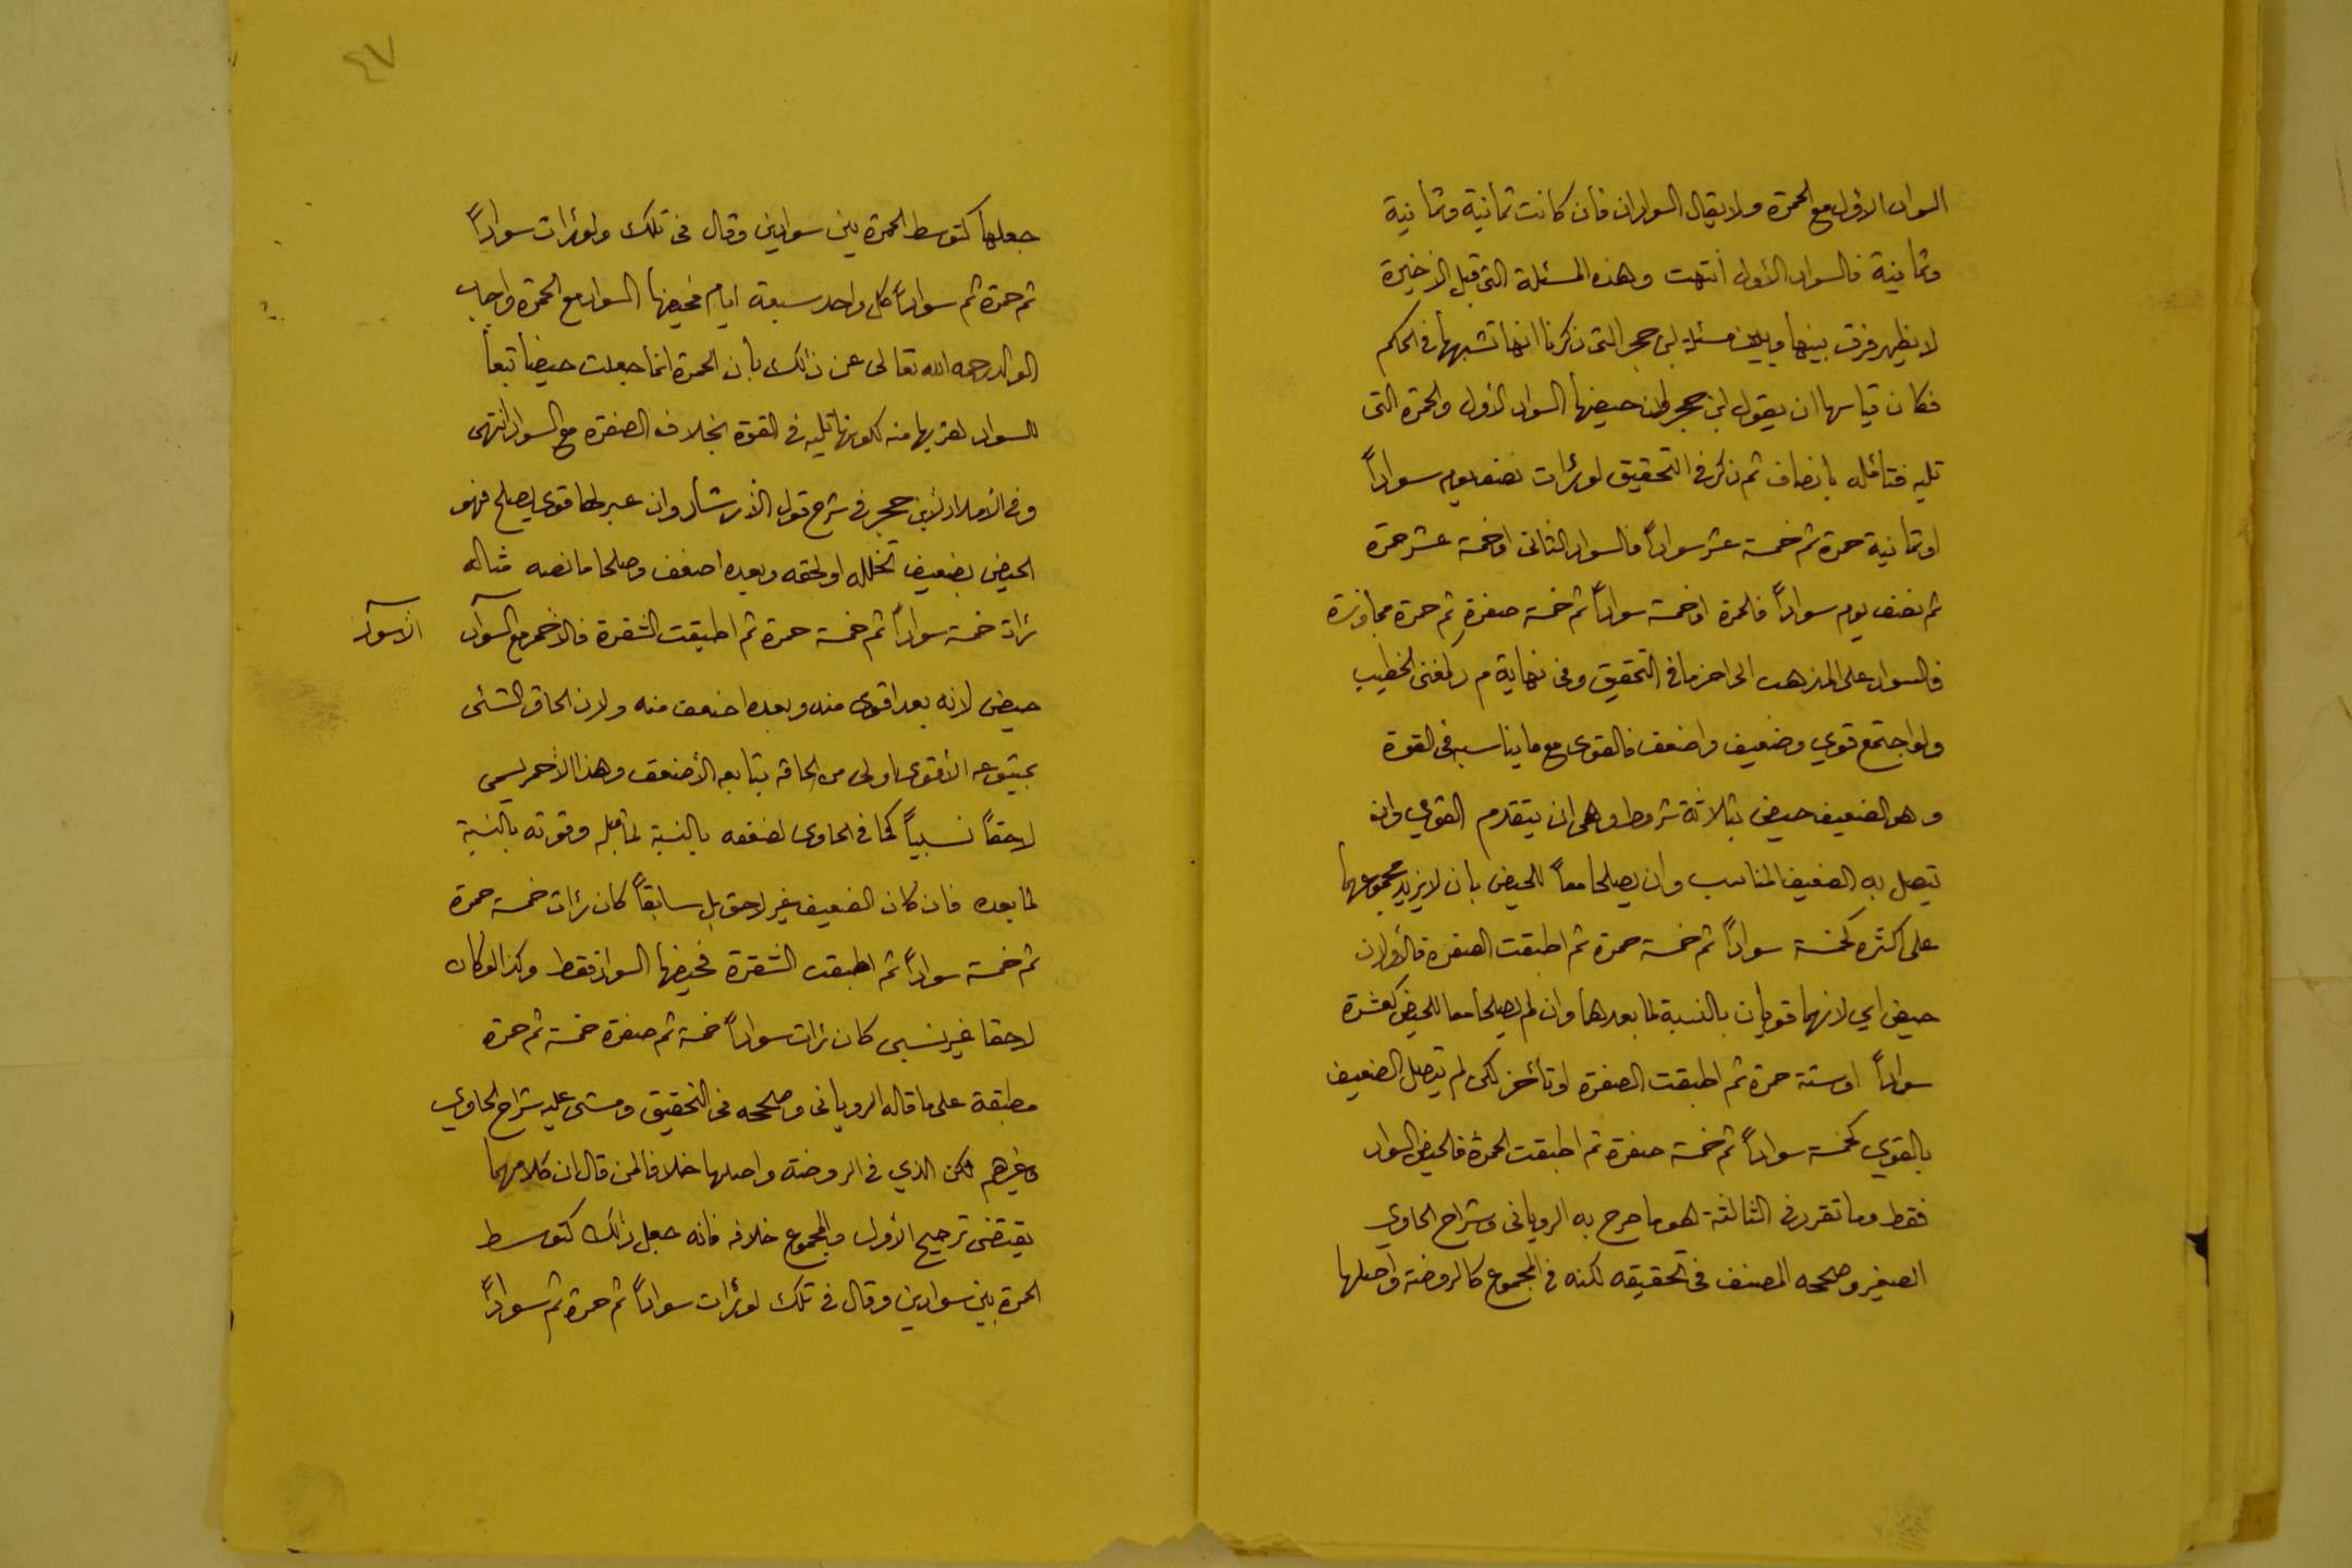 السواد الاول مع الحمرة ولا يقال السوادان فان كانت ثمانية وثمانية
وثمانية فالسواد الأول انتهت وهذه المسئلة التى قبل الاخيرة
لا يظهر فرق بينها وبين مسئلة ابن حجر التى ذكرنا انها تشبهها فى الحكم
فكان قياسها ان يقول ابن حجر حيضها السواد الأول والحمرة التى
تليه فتأمله بانصاف ثم ذكر فى التحقيق لو رئات نصف يوم سواداً
او ثمانية حمرة ثم خمسة عشر سواداً فالسواد الثانى او خمسة عشر حمرة
ثم نصف يوم سواداً فالحمرة او خمسة سواداً ثم خمسة صفرة ثم حمرة مجاوزة
فالسواد على المذهب الى اخر ما فى التحقيق وفى نهاية م ر لمغنى الخطيب
ولو اجتمع قوي وضعيف واضعف فالقوى مع ما يناسبه فى القوة
وهو الضعيف حيض بثلاثة شروط وهى ان يتقدم القوي وان
يتصل به الضعيف المناسب وان يصلحا معاً للحيض بان لا يزيد مجموعهما
على اكثره كخمسة سواداً ثم خمسة حمرة ثم اطبقت الصفرة فالأولان
حيض اي لانهما قويان بالنسبة لما بعدهما وان لم يصلحا معا للحيض كعشرة
سواداً اوستة حمرة ثم اطبقت الصفرة او تأخر لكن لم يتصل الضعيف
بالقوي كخمسة سواداً ثم خمسة صفرة ثم اطبقت الحمرة فالحيض السواد
فقط وما تقرر فى الثالثة هو ما صرح به الرويانى وشراح الحاوي
الصغير وصححه المصنف فى تحقيقه لكنه فى المجموع كالروضة واصلها
٤٧
جعلها كتوسط الحمرة بين سوادين وقال فى تلك ولو رئات سواداً
ثم حمرة ثم سواداً كل واحد سبعة ايام فحيضها السواد مع الحمرة واجاب
الوالد رحمه الله تعالى عن ذلك بأن الحمرة انما جعلت حيضاً تبعاً
للسواد لقربها منه لكونها تليه فى القوة بخلاف الصفرة مع السواد انتهى
وفى الأمداد لابن حجر فى شرح قول الأرشاد وان عبر طا قوى يصلح فهو
الحيض بضعيف تخلله او لحقه وبعده اضعف وصلحا ما نصه مثاله
رئات خمسة سواداً ثم خمسة حمرة ثم اطبقت الشقرة فالأحمر مع السواد
الأسود
حيض لانه بعد اقوى منه وبعده اضعف منه ولان الحاق الشئى
بمتبوعه الأقوى اولى من الحاقه بتابعه الأضعف وهذا الأحمر يسمى
لاحقاً نسبياً كما فى الحاوى لضعفه بالنسبة لما قبله وقوته بالنسبة
لما بعده فان كان الضعيف غير لاحق بل سابقاً كان رئات خمسة حمرة
ثم خمسة سواداً ثم اطبقت الشقرة فحيضها السواد فقط وكذا لو كان
لاحقا غير نسبى كان رئات سواداً خمسة ثم صفرة خمسة ثم حمرة
مطبقة على ما قاله الرويانى وصححه فى التحقيق ومشى عليه شراح الحاوي
وغيرهم لكن الذي فى الروضة واصلها خلافا لمن قال ان كلامهما
يقتضى ترجيح الأول والمجموع خلافه فانه جعل ذلك كتوسط
الحمرة بين سوادين وقال فى تلك لو رئات سواداً ثم حمرة ثم سواداً